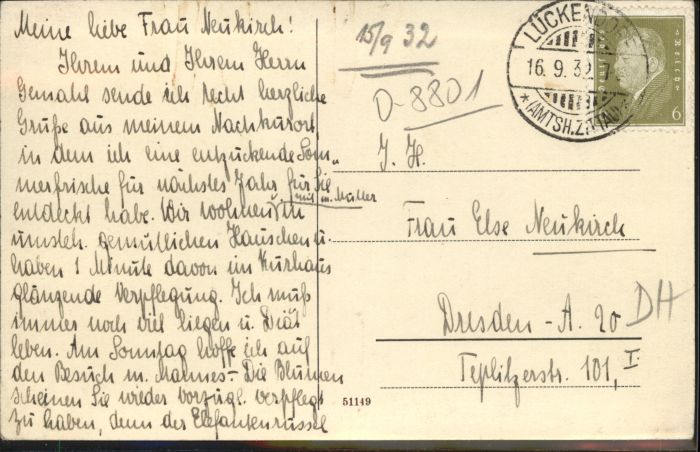 Meine liebe Frau Neukirch!
Ihrem und Ihrem Herrn
Gemahl sende ich recht herzliche
Grüße aus meinem Nachkurort,
in dem ich eine entzückende Som„
merfrische für nächstes Jahr für Sie
mit m. Mutter
entdeckt habe. Wir wohnen im
umsteh. gemütlichen Häuschen u.
haben 1 Minute davon im Kurhaus
glänzende Verpflegung. Ich muß
immer noch viel liegen u. Diät
leben. Am Sonntag hoffe ich auf
den Besuch m. Mannes.- Die Blumen
scheinen Sie wieder vorzügl. verpflegt
zu haben, denn der Elefantenrüssel
15/9 32
D-8801
LÜCKENDORF
16. 9. 32
*(AMTSH. ZITTAU)*
6
Frau Else Neukirch
Dresden - A. 20
DH
Teplitzerstr. 101, I
51149